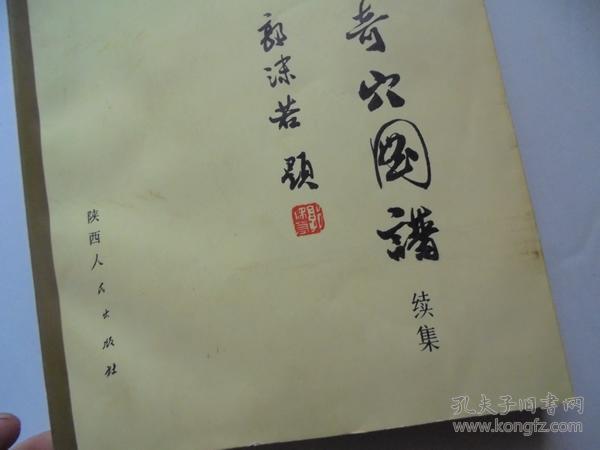 奇穴图譜
续集
郭沫若题
陕西人民出版社
孔夫子旧书网
www.kongfz.com